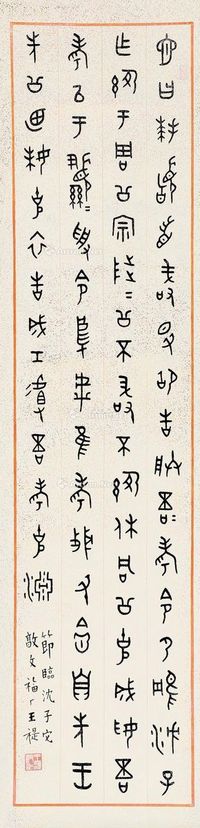 它曰拜稽首敢卲告朕吾考令乃鴅沈子
乍于周公宗陟二公不敢不休同公克成妥吾
考以于顯受令烏虖隹考又念自先王
先公廼克衣告成工吾考克淵
節臨沈子它
敦文 福厂王禔